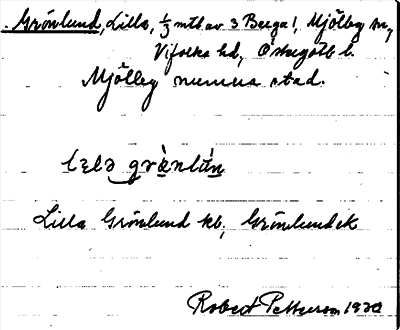 Grönlund, Lilla, 1/3 mtl av 3 Berga!, Mjölby sn,
Vifolka hd, Östergötl. l.
Mjölby numera stad.
lɛlə grø̀nlùn
Lilla Grönlund kk, Grönlund ek
Robert Petterson 1920